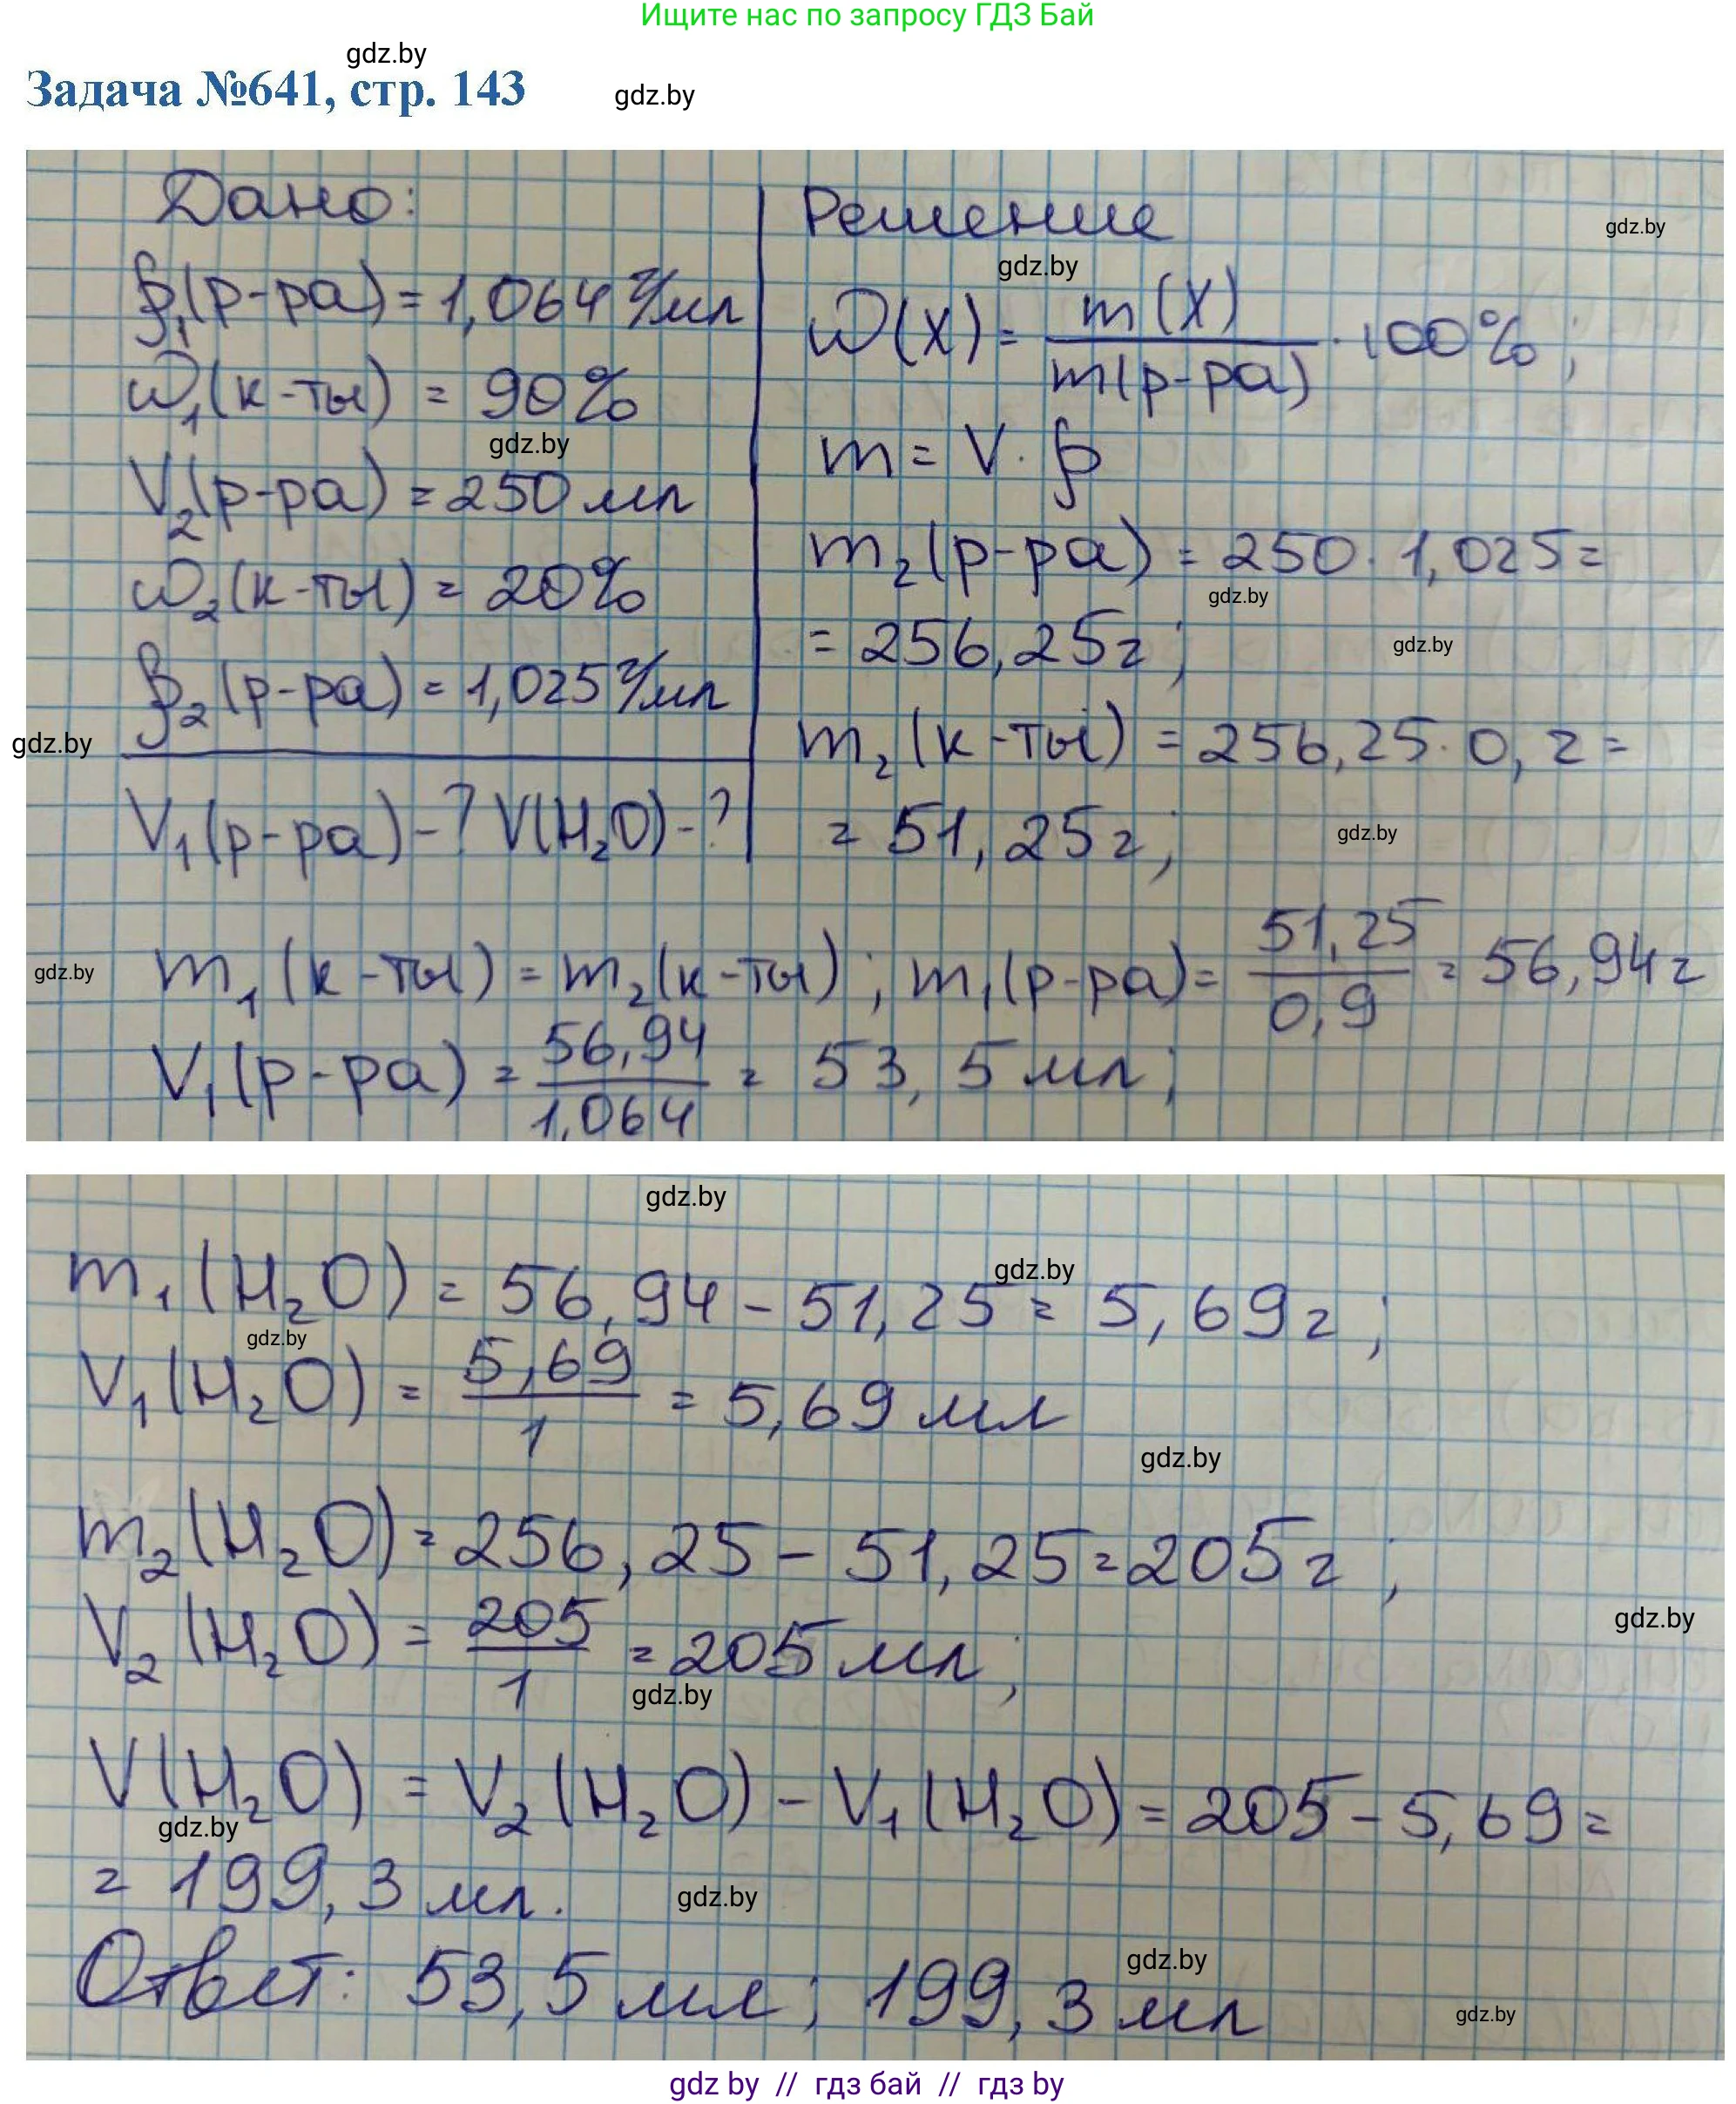 Ищите нас по запросу ГДЗ Бай
gdz.by
Задача №641, стр. 143
gdz.by
Дано:
ρ₁(р-ра) = 1,064 г/мл
ω₁(к-ты) = 90%
gdz.by
V₂(р-ра) = 250 мл
ω₂(к-ты) = 20%
ρ₂(р-ра) = 1,025 г/мл
gdz.by
V₁(р-ра) - ? V(H₂O) - ?
Решение
gdz.by
gdz.by
ω(X) = m(X) / m(р-ра) · 100%;
m = V · ρ
m₂(р-ра) = 250 · 1,025 =
gdz.by
= 256,25 г;
gdz.by
m₂(к-ты) = 256,25 · 0,2 =
= 51,25 г;
gdz.by
gdz.by
m₁(к-ты) = m₂(к-ты); m₁(р-ра) = 51,25 / 0,9 = 56,94 г
V₁(р-ра) = 56,94 / 1,064 = 53,5 мл;
gdz.by
m₁(H₂O) = 56,94 - 51,25 = 5,69 г;
gdz.by
gdz.by
V₁(H₂O) = 5,69 / 1 = 5,69 мл
gdz.by
m₂(H₂O) = 256,25 - 51,25 = 205 г;
gdz.by
V₂(H₂O) = 205 / 1 = 205 мл;
gdz.by
V(H₂O) = V₂(H₂O) - V₁(H₂O) = 205 - 5,69 =
gdz.by
= 199,3 мл.
gdz.by
Ответ: 53,5 мл; 199,3 мл
gdz.by
gdz.by
gdz by // гдз бай // гдз by